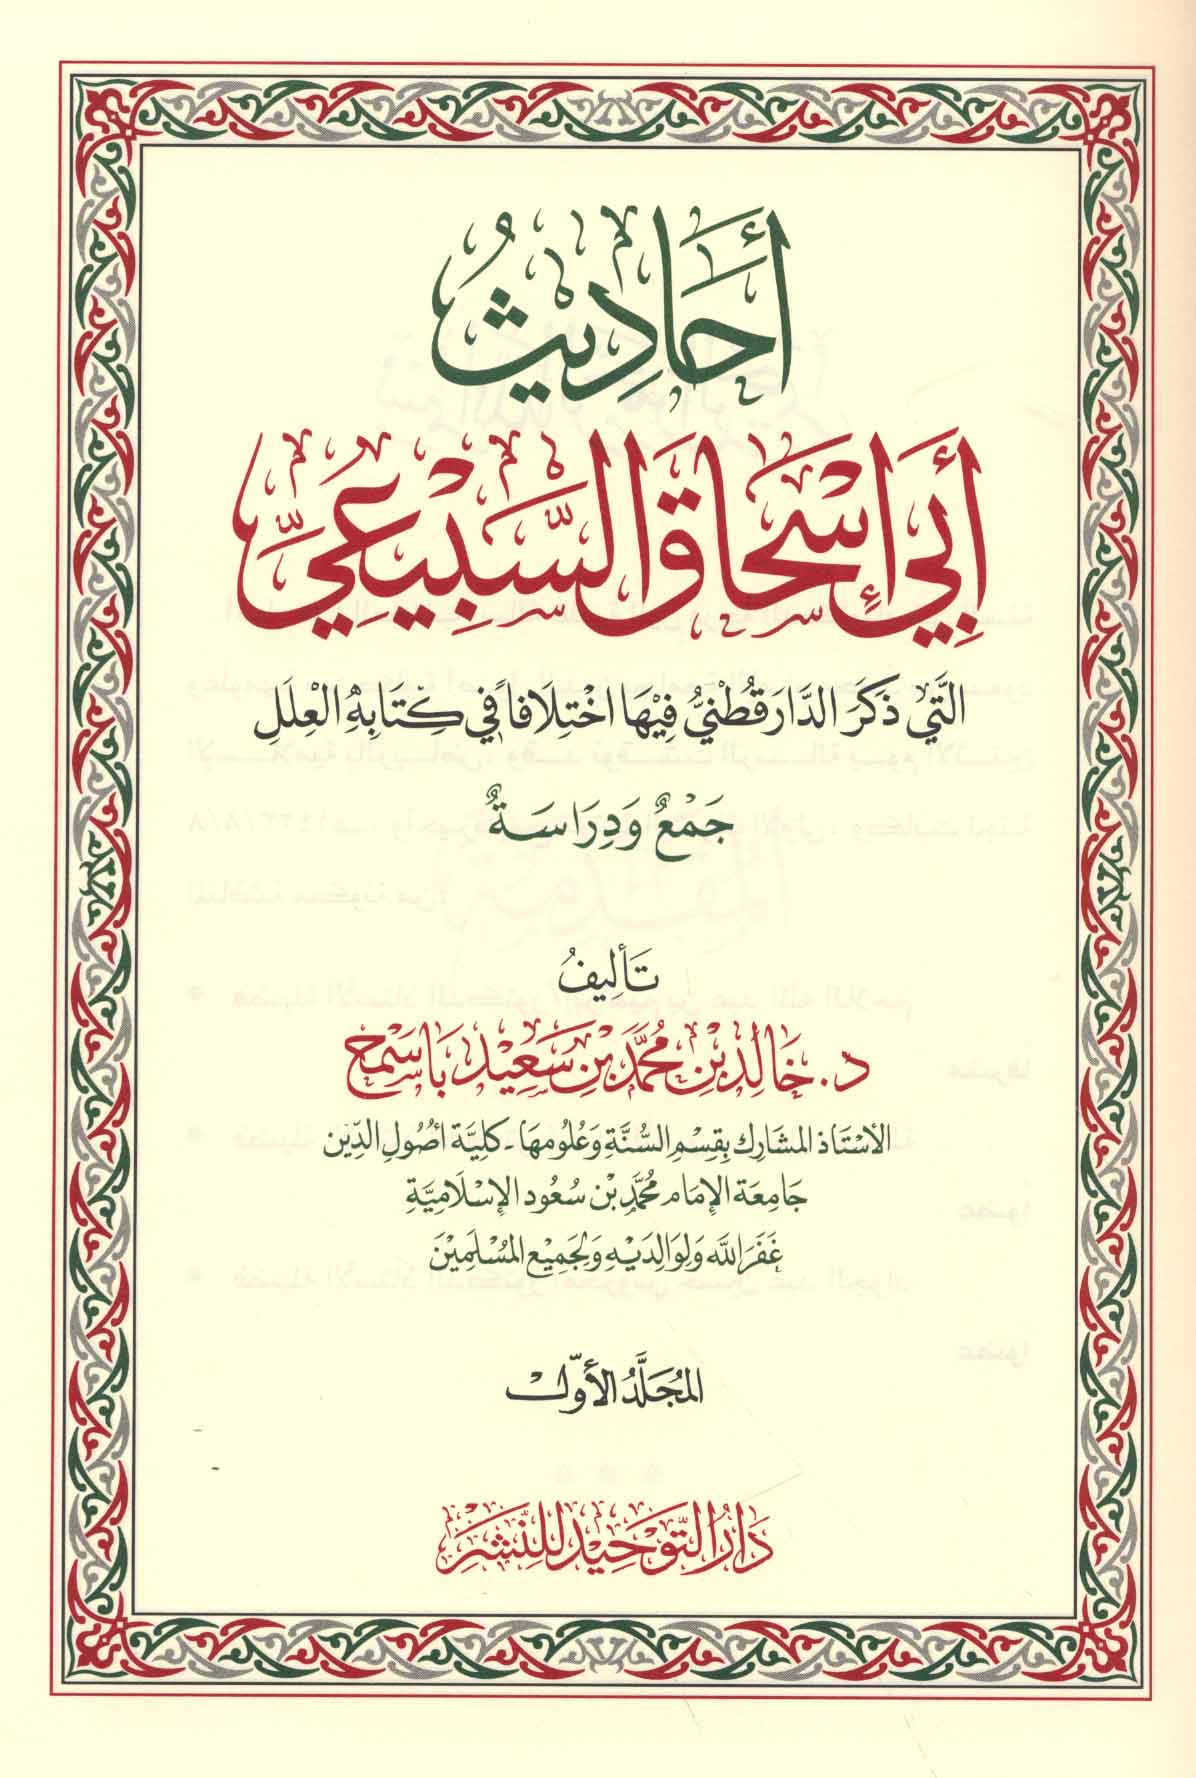 أَحَادِيثُ
أَبِي إِسْحَاقَ السَّبِيعِيِّ
الَّتِي ذَكَرَ الدَّارَقُطْنِيُّ فِيهَا اخْتِلَافاً فِي كِتَابِهِ الْعِلَلِ
جَمْعٌ وَدِرَاسَةٌ
تَأْلِيفُ
د. خَالِد بْنِ مُحَمَّد بْنِ سَعِيْد بَاسَمْح
الأُسْتَاذ المشَارِك بِقِسْمِ السُّنَّةِ وَعُلُومِهَا - كُلِيَّة أصُولِ الدِّين
جَامِعَة الإِمَام مُحَمَّد بْن سُعُود الإِسْلَامِيَّةِ
غَفَرَ اللَّه وَلِوَالِدَيْهِ وَلِجَمِيْعِ المُسْلِمِيْنَ
المُجَلَّدُ الأَوّل
دَارُ التَّوْحِيْد لِلنَّشْرِ